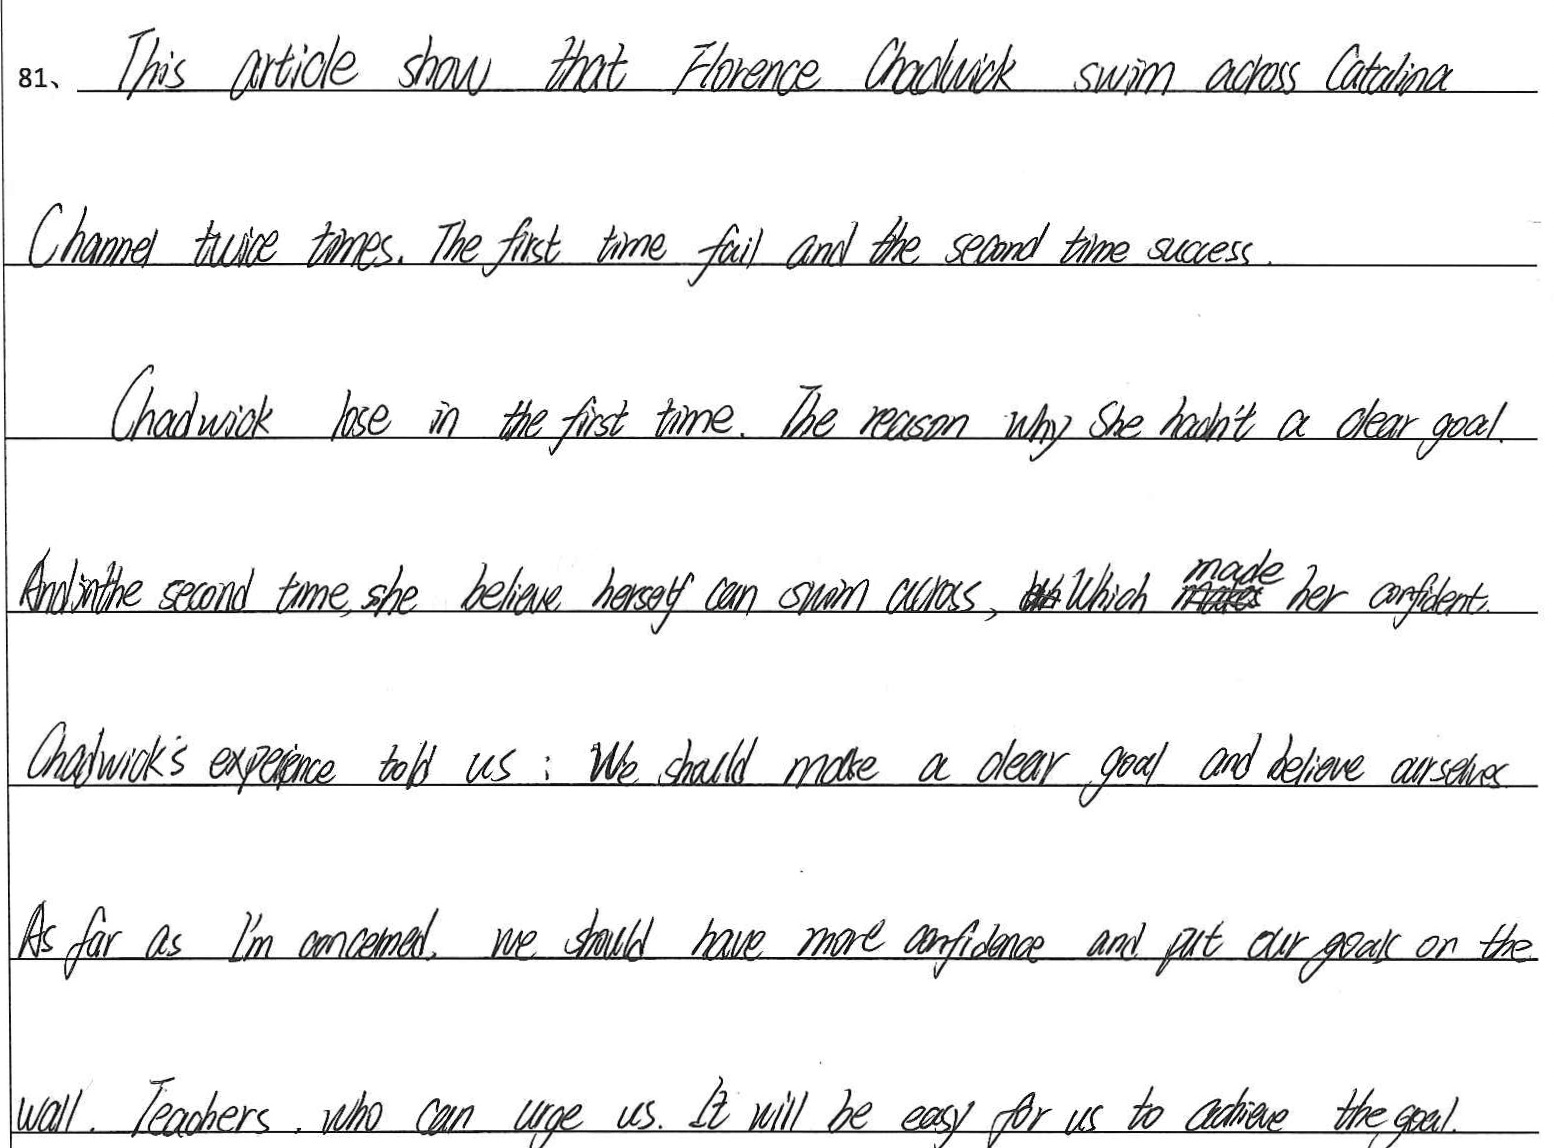 81、 This article show that Florence Chadwick swim across Catalina
Channel twice times. The first time fail and the second time success.
Chadwick lose in the first time. The reason why She hadn't a clear goal.
And in the second time, she believe herself can swim across, Which made her confident.
Chadwick's experience told us : We should make a clear goal and believe ourselves
As far as I'm concerned, we should have more confidence and put our goals on the
wall. Teachers, who can urge us. It will be easy for us to achieve the goal.